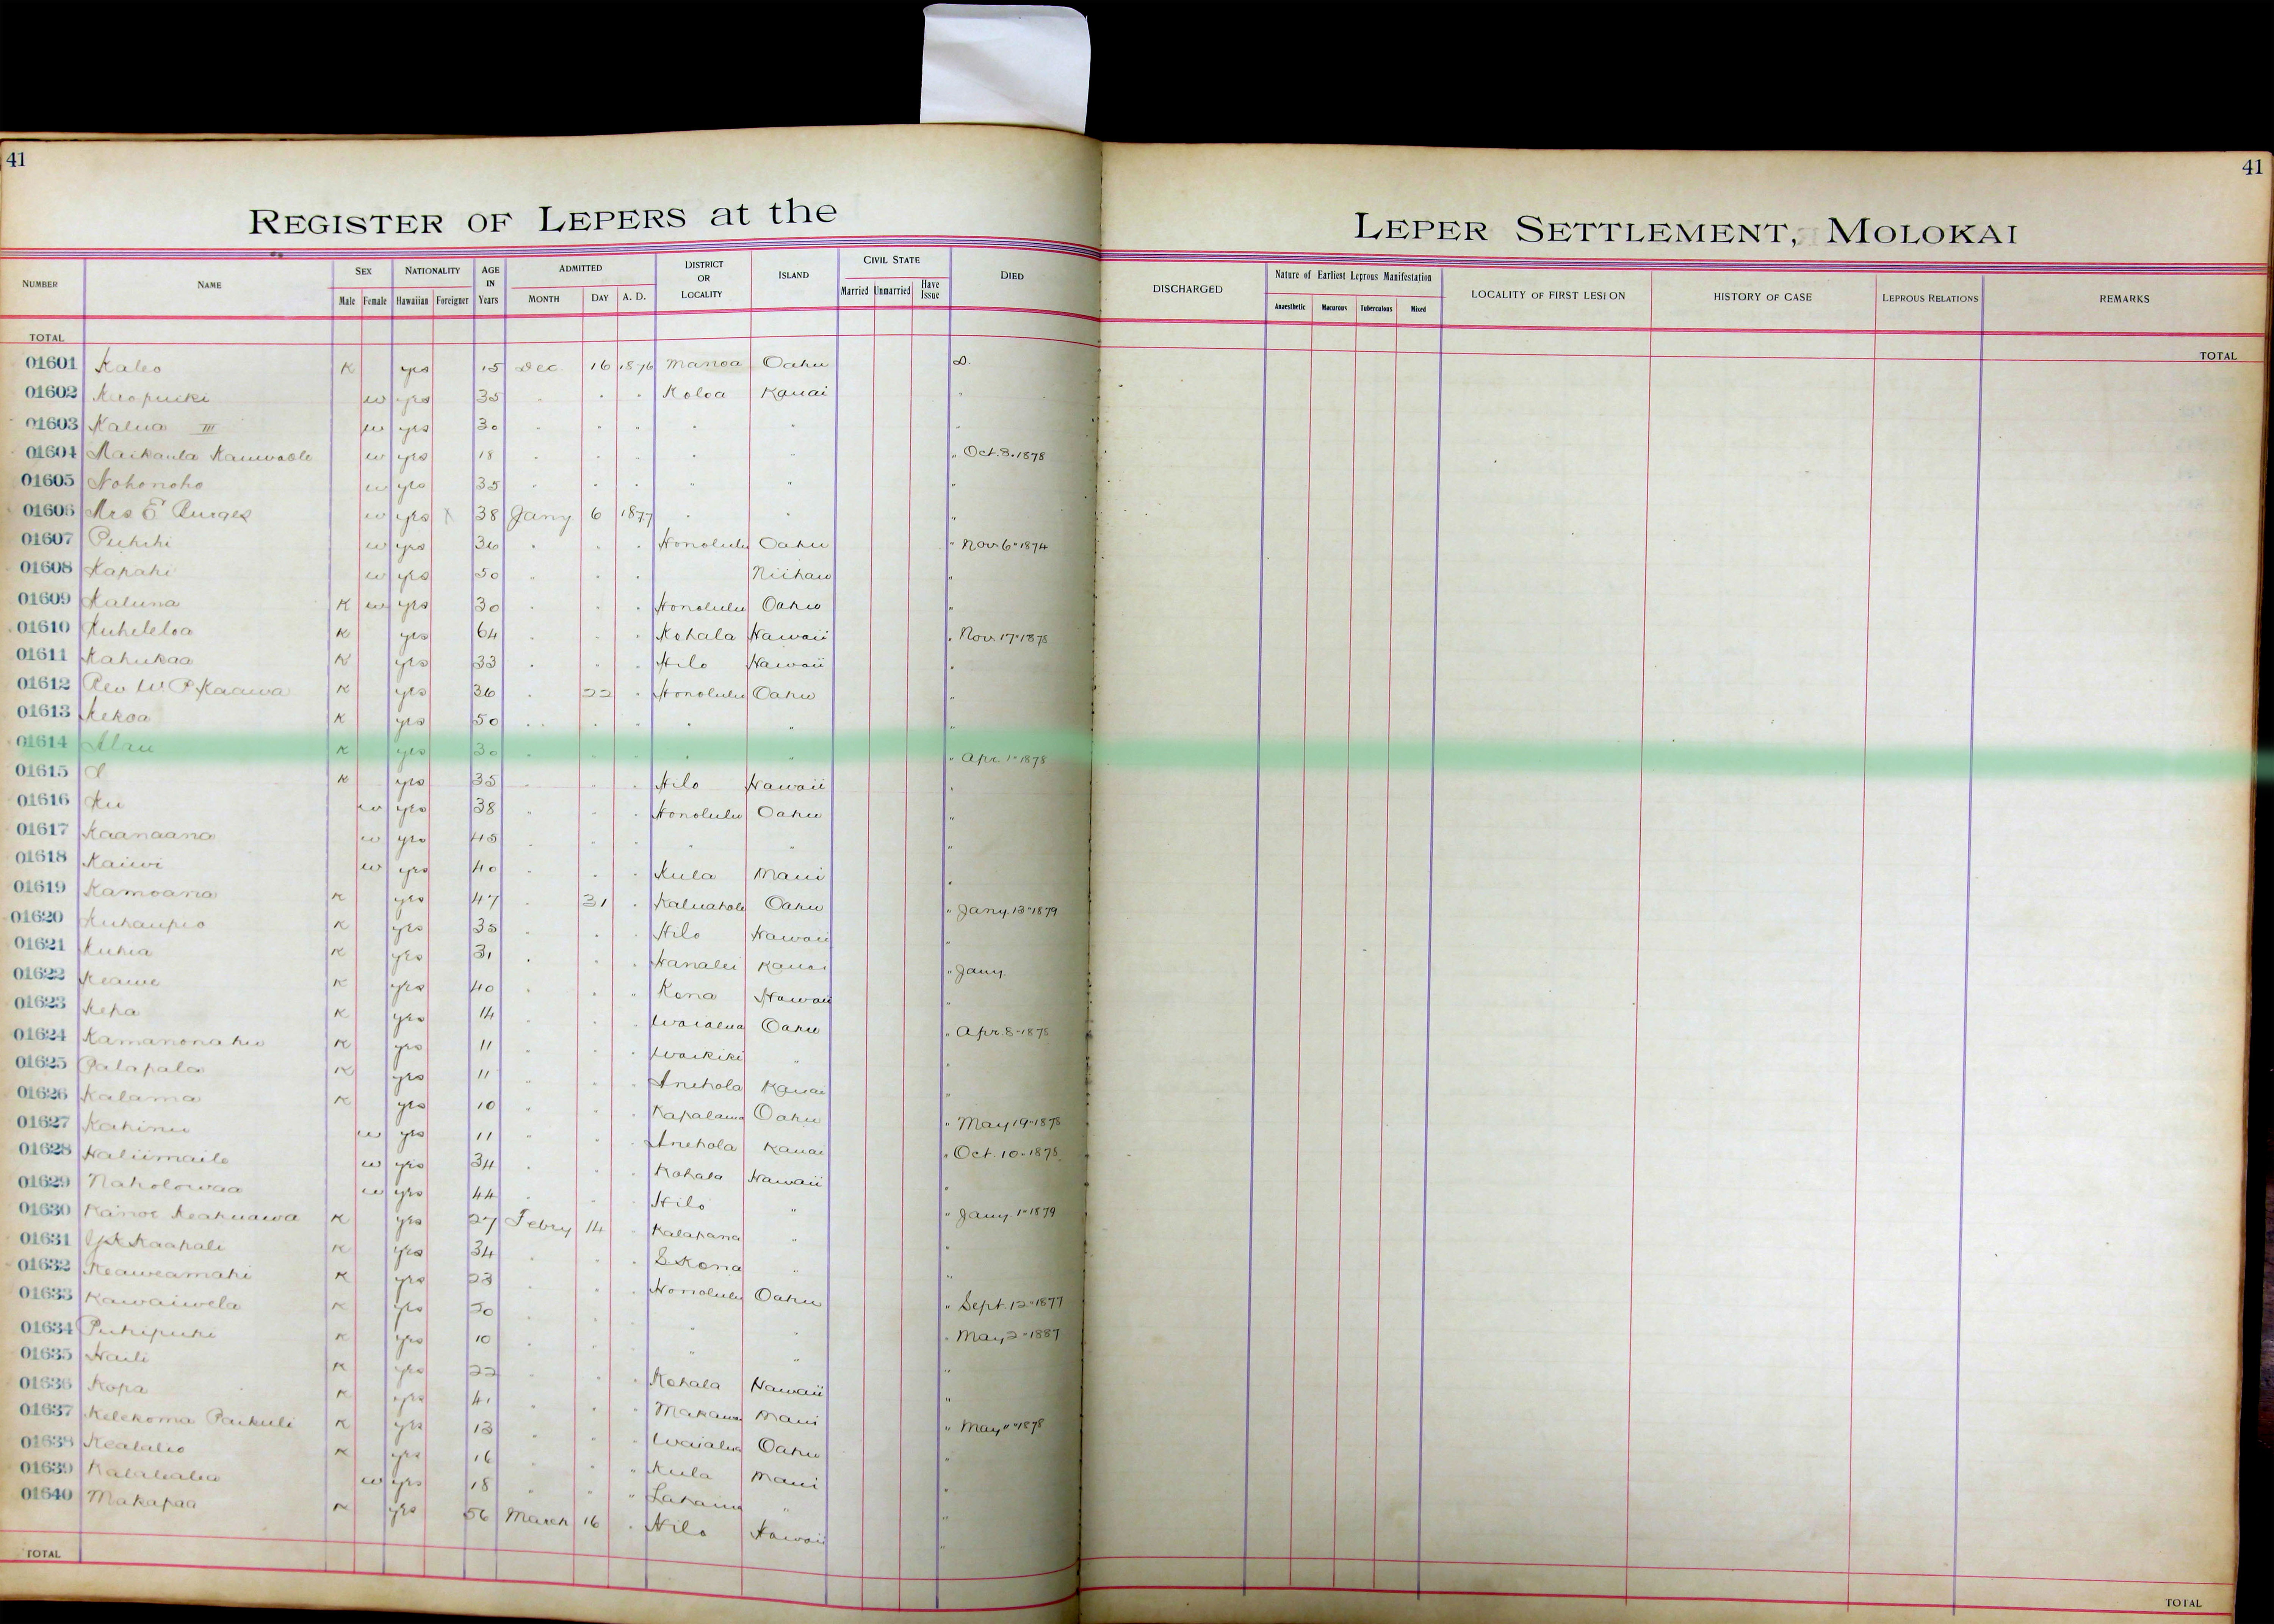 41
41
REGISTER OF LEPERS at the
LEPER SETTLEMENT, MOLOKAI
NUMBER NAME SEX Male Female NATIONALITY Hawaiian Foreigner AGE IN Years ADMITTED MONTH DAY A. D. DISTRICT OR LOCALITY ISLAND CIVIL STATE Married Unmarried Have Issue DIED DISCHARGED Nature of Earliest Leprous Manifestation Anaesthetic Macurous Tuberculous Mixed LOCALITY OF FIRST LESION HISTORY OF CASE LEPROUS RELATIONS REMARKS
TOTAL TOTAL
01601 Kaleo K yes 15 Dec. 16 1876 Manoa Oahu D.
01602 w yes 35 " " " Koloa Kauai "
01603 Kalua III w yes 30 " " " " " "
01604 w yes 18 " " " " " " Oct. 3. 1878
01605 Nohonoho w yes 35 " " " " " "
01606 Mrs E Burges w yes X 38 Jany 6 1877 " " "
01607 w yes 36 " " " Honolulu Oahu " Nov 6" 1874
01608 Kapahi w yes 50 " " " Niihau "
01609 Kaluna K w yes 30 " " " Honolulu Oahu "
01610 Kuheleloa K yes 64 " " " Kohala Hawaii " Nov. 17" 1878
01611 Kahukaa K yes 33 " " " Hilo Hawaii "
01612 Rev W. P. Kaawa K yes 36 " 22 " Honolulu Oahu "
01613 Kekoa K yes 50 " " " " " "
01614 K yes 30 " " " " " " Apr. 1" 1878
01615 K yes 35 " " " Hilo Hawaii "
01616 Ku w yes 38 " " " Honolulu Oahu "
01617 Kaanaana w yes 45 " " " " " "
01618 Kaiwi w yes 40 " " " Kula Maui "
01619 Kamoana K yes 47 " 31 " Oahu " Jany. 13" 1879
01620 Kuhaupio K yes 35 " " " Hilo Hawaii "
01621 Kuhia K yes 31 " " " Hanalei Kauai " Jany.
01622 Keawe K yes 40 " " " Kona Hawaii "
01623 Kepa K yes 14 " " " Waialua Oahu " Apr. 8" 1878
01624 Kamanonahu K yes 11 " " " Waikiki " "
01625 Palapala K yes 11 " " " Anehola Kauai "
01626 Kalama K yes 10 " " " Kapalama Oahu " May 19" 1878
01627 Kahinu w yes 11 " " " Anehola Kauai " Oct. 10" 1878
01628 Haliimaile w yes 34 " " " Kohala Hawaii "
01629 Naholowaa w yes 44 " " " Hilo " " Jany. 1" 1879
01630 Kainoe Keakuawa K yes 27 Febry 14 " Kalapana " "
01631 Kaahale K yes 34 " " " S. Kona " "
01632 Keaweamahi K yes 23 " " " Honolulu Oahu " Sept. 12" 1877
01633 Kawaiwela K yes " " " " " " May 2" 1887
01634 Puhipuhi K yes 10 " " " " " "
01635 Haili K yes 22 " " " Kohala Hawaii "
01636 Kopa K yes 41 " " " Makawao Maui " May 11" 1878
01637 Kelekoma Paikuli K yes 13 " " " Waialua Oahu "
01638 Kealalio K yes 16 " " " Kula Maui "
01639 Kalahalia w yes 18 " " " Lahaina " "
01640 Makapaa K yes 56 March 16 " Hilo Hawaii "
TOTAL TOTAL